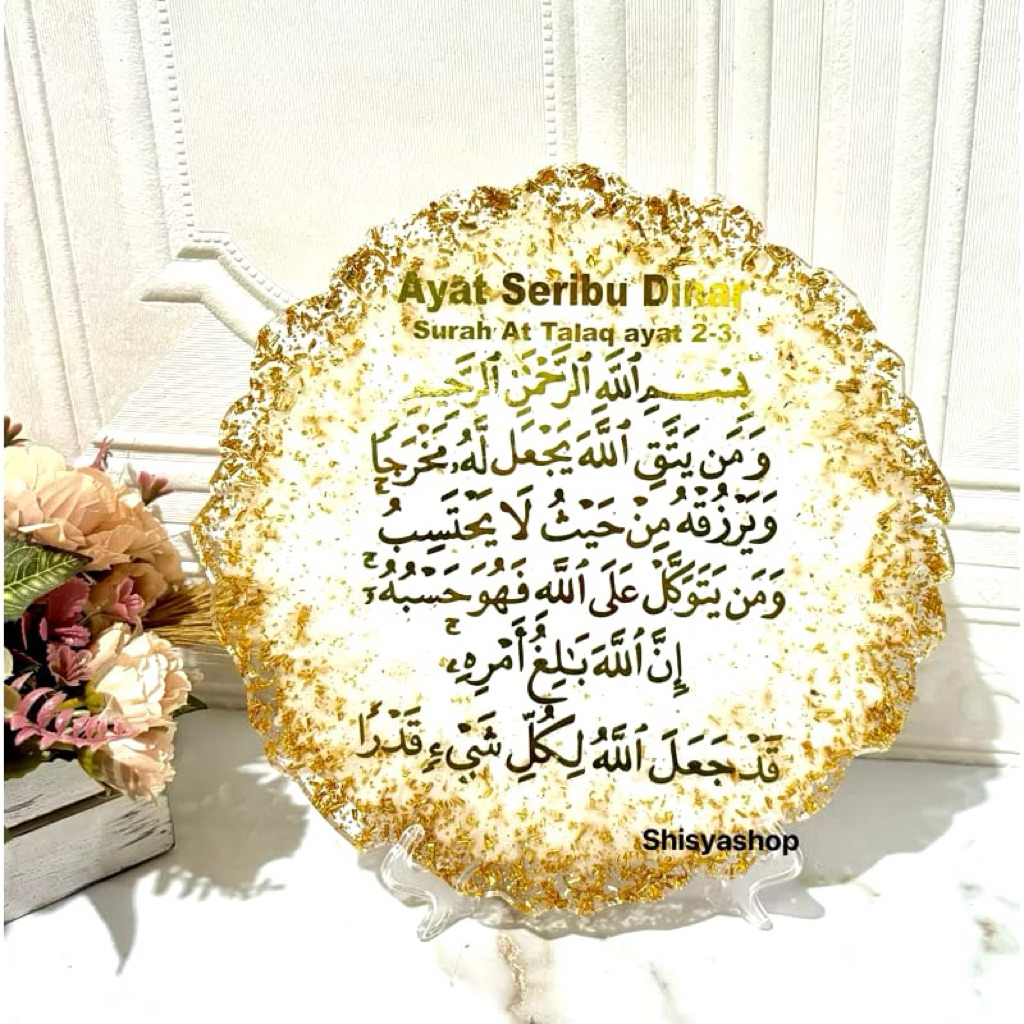 Ayat Seribu Dinar
Surah At Talaq ayat 2-3
بِسْمِ ٱللَّهِ ٱلرَّحْمَٰنِ ٱلرَّحِيمِ
وَمَن يَتَّقِ ٱللَّهَ يَجْعَل لَّهُۥ مَخْرَجًا
وَيَرْزُقْهُ مِنْ حَيْثُ لَا يَحْتَسِبُ ۚ
وَمَن يَتَوَكَّلْ عَلَى ٱللَّهِ فَهُوَ حَسْبُهُۥٓ ۚ
إِنَّ ٱللَّهَ بَـٰلِغُ أَمْرِهِۦ ۚ
قَدْ جَعَلَ ٱللَّهُ لِكُلِّ شَىْءٍ قَدْرًا
Shisyashop